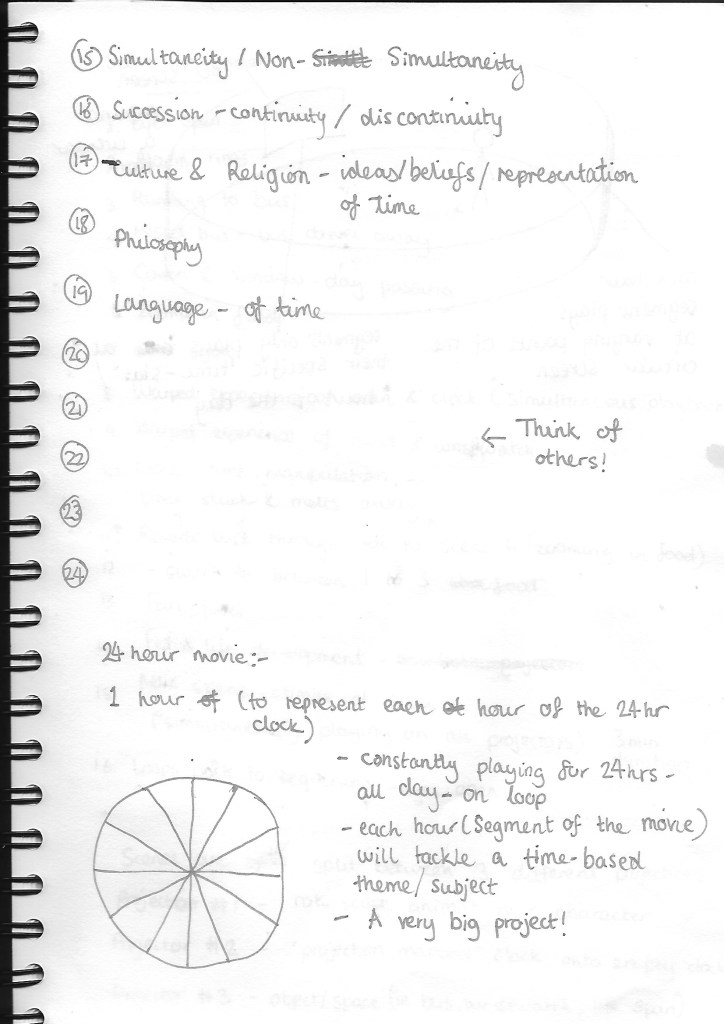 15 Simultaneity / Non- Simultaneity
16 Succession - continuity / discontinuity
17 Culture & Religion - ideas/beliefs/representation
of Time
18 Philosophy
19 Language - of time
20
21
← Think of
others!
22
23
24
24 hour movie:-
1 hour of (to represent each of hour of the 24hr
clock)
- constantly playing for 24hrs -
all day - on loop
- each hour (segment of the movie)
will tackle a time-based
theme/subject
- A very big project!